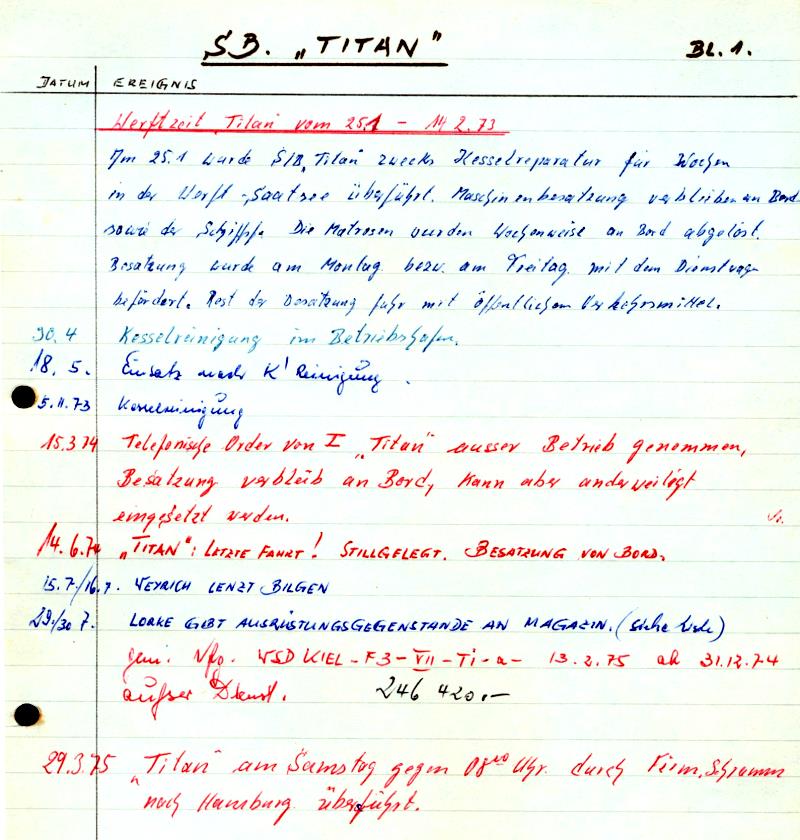 SB. „TITAN" BL. 1.
DATUM EREIGNIS
Werftzeit „Titan" vom 25.1 - 14.2.73
Am 25.1 wurde S/B „Titan" zwecks Kesselreparatur für Wochen
in der Werft-Saatsee überführt. Maschinenbesatzung verbleiben an Bord
sowie der Schiffsf. Die Matrosen wurden Wochenweise an Bord abgelöst.
Besatzung wurde am Montag bezw. am Freitag mit dem Dienstwagen
befördert. Rest der Besatzung fuhr mit öffentlichem Verkehrsmittel.
30.4 Kesselreinigung im Betriebshafen.
18. 5. Einsatz nach K' Reinigung.
5.11.73 Kesselreinigung
15.3.74 Telefonische Order von I „Titan" ausser Betrieb genommen,
Besatzung verbleib an Bord, kann aber anderweitigt
eingesetzt werden.
14.6.74 „TITAN": LETZTE FAHRT! STILLGELEGT. BESATZUNG VON BORD.
15.7./16.7. WEYRICH LENZT BILGEN
29./30 7. LORKE GIBT AUSRÜSTUNGSGEGENSTÄNDE AN MAGAZIN. (siehe Liste)
gem. Vfg. WSD KIEL - F3 - VII - Ti - a - 13.2.75 ab 31.12.74
außer Dienst. 246 420.-
29.3.75 „Titan" am Samstag gegen 08⁰⁰ Uhr. durch Firm. Schramm
nach Hamburg überführt.